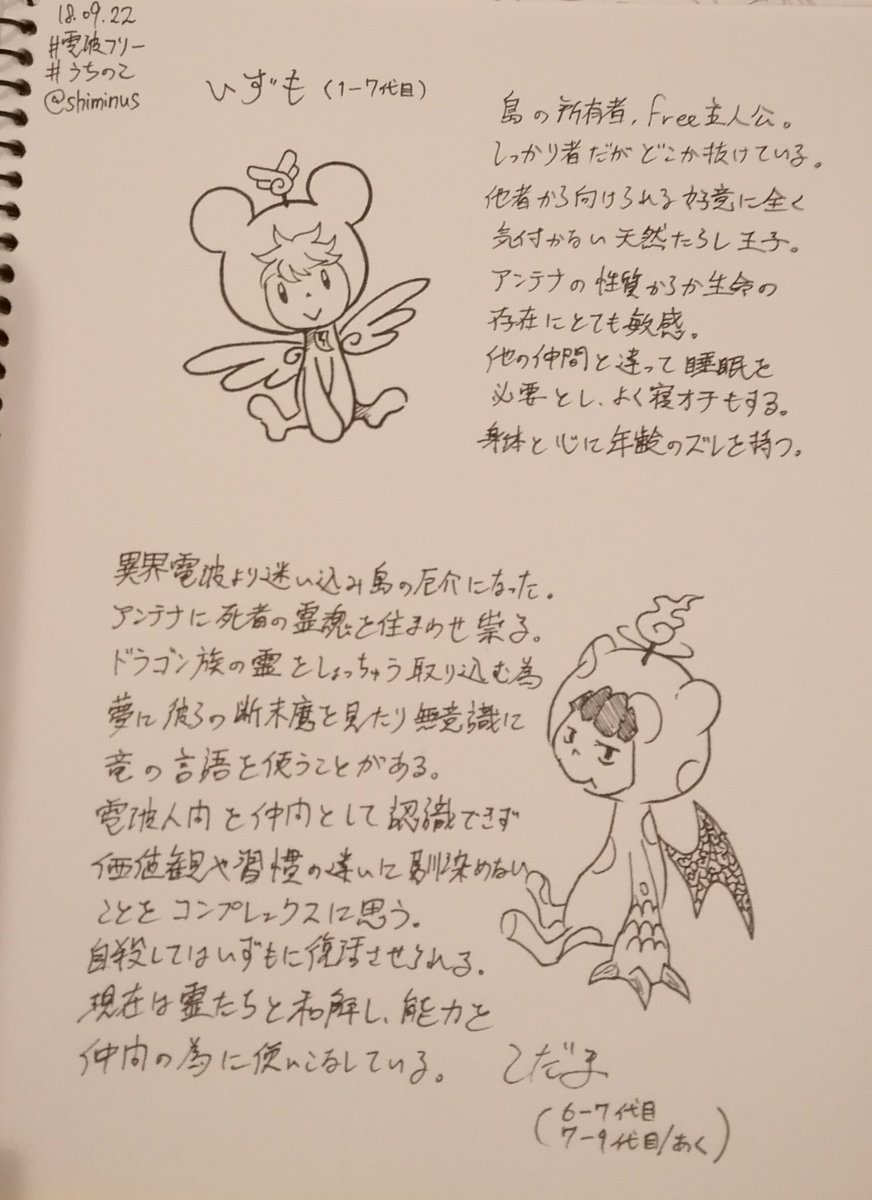 18.09.22
#電波フリー
#うちのこ
@shiminus
いずも (1-7代目)
島の所有者,free主人公。
しっかり者だがどこか抜けている。
他者から向けられる好意に全く
気付かない天然たらし王子。
アンテナの性質からか生命の
存在にとても敏感。
他の仲間と違って睡眠を
必要とし、よく寝オチもする。
身体と心に年齢のズレを持つ。
異界電波より迷い込み島の厄介になった。
アンテナに死者の霊魂を住まわせ祟る。
ドラゴン族の霊をしょっちゅう取り込む為
夢に彼らの断末魔を見たり無意識に
竜の言語を使うことがある。
電波人間を仲間として認識できず
価値観や習慣の違いに馴染めない
ことをコンプレックスに思う。
自殺してはいずもに復活させられる。
現在は霊たちと和解し、能力を
仲間の為に使いこなしている。
こだま
(6-7代目
7-9代目/あく)